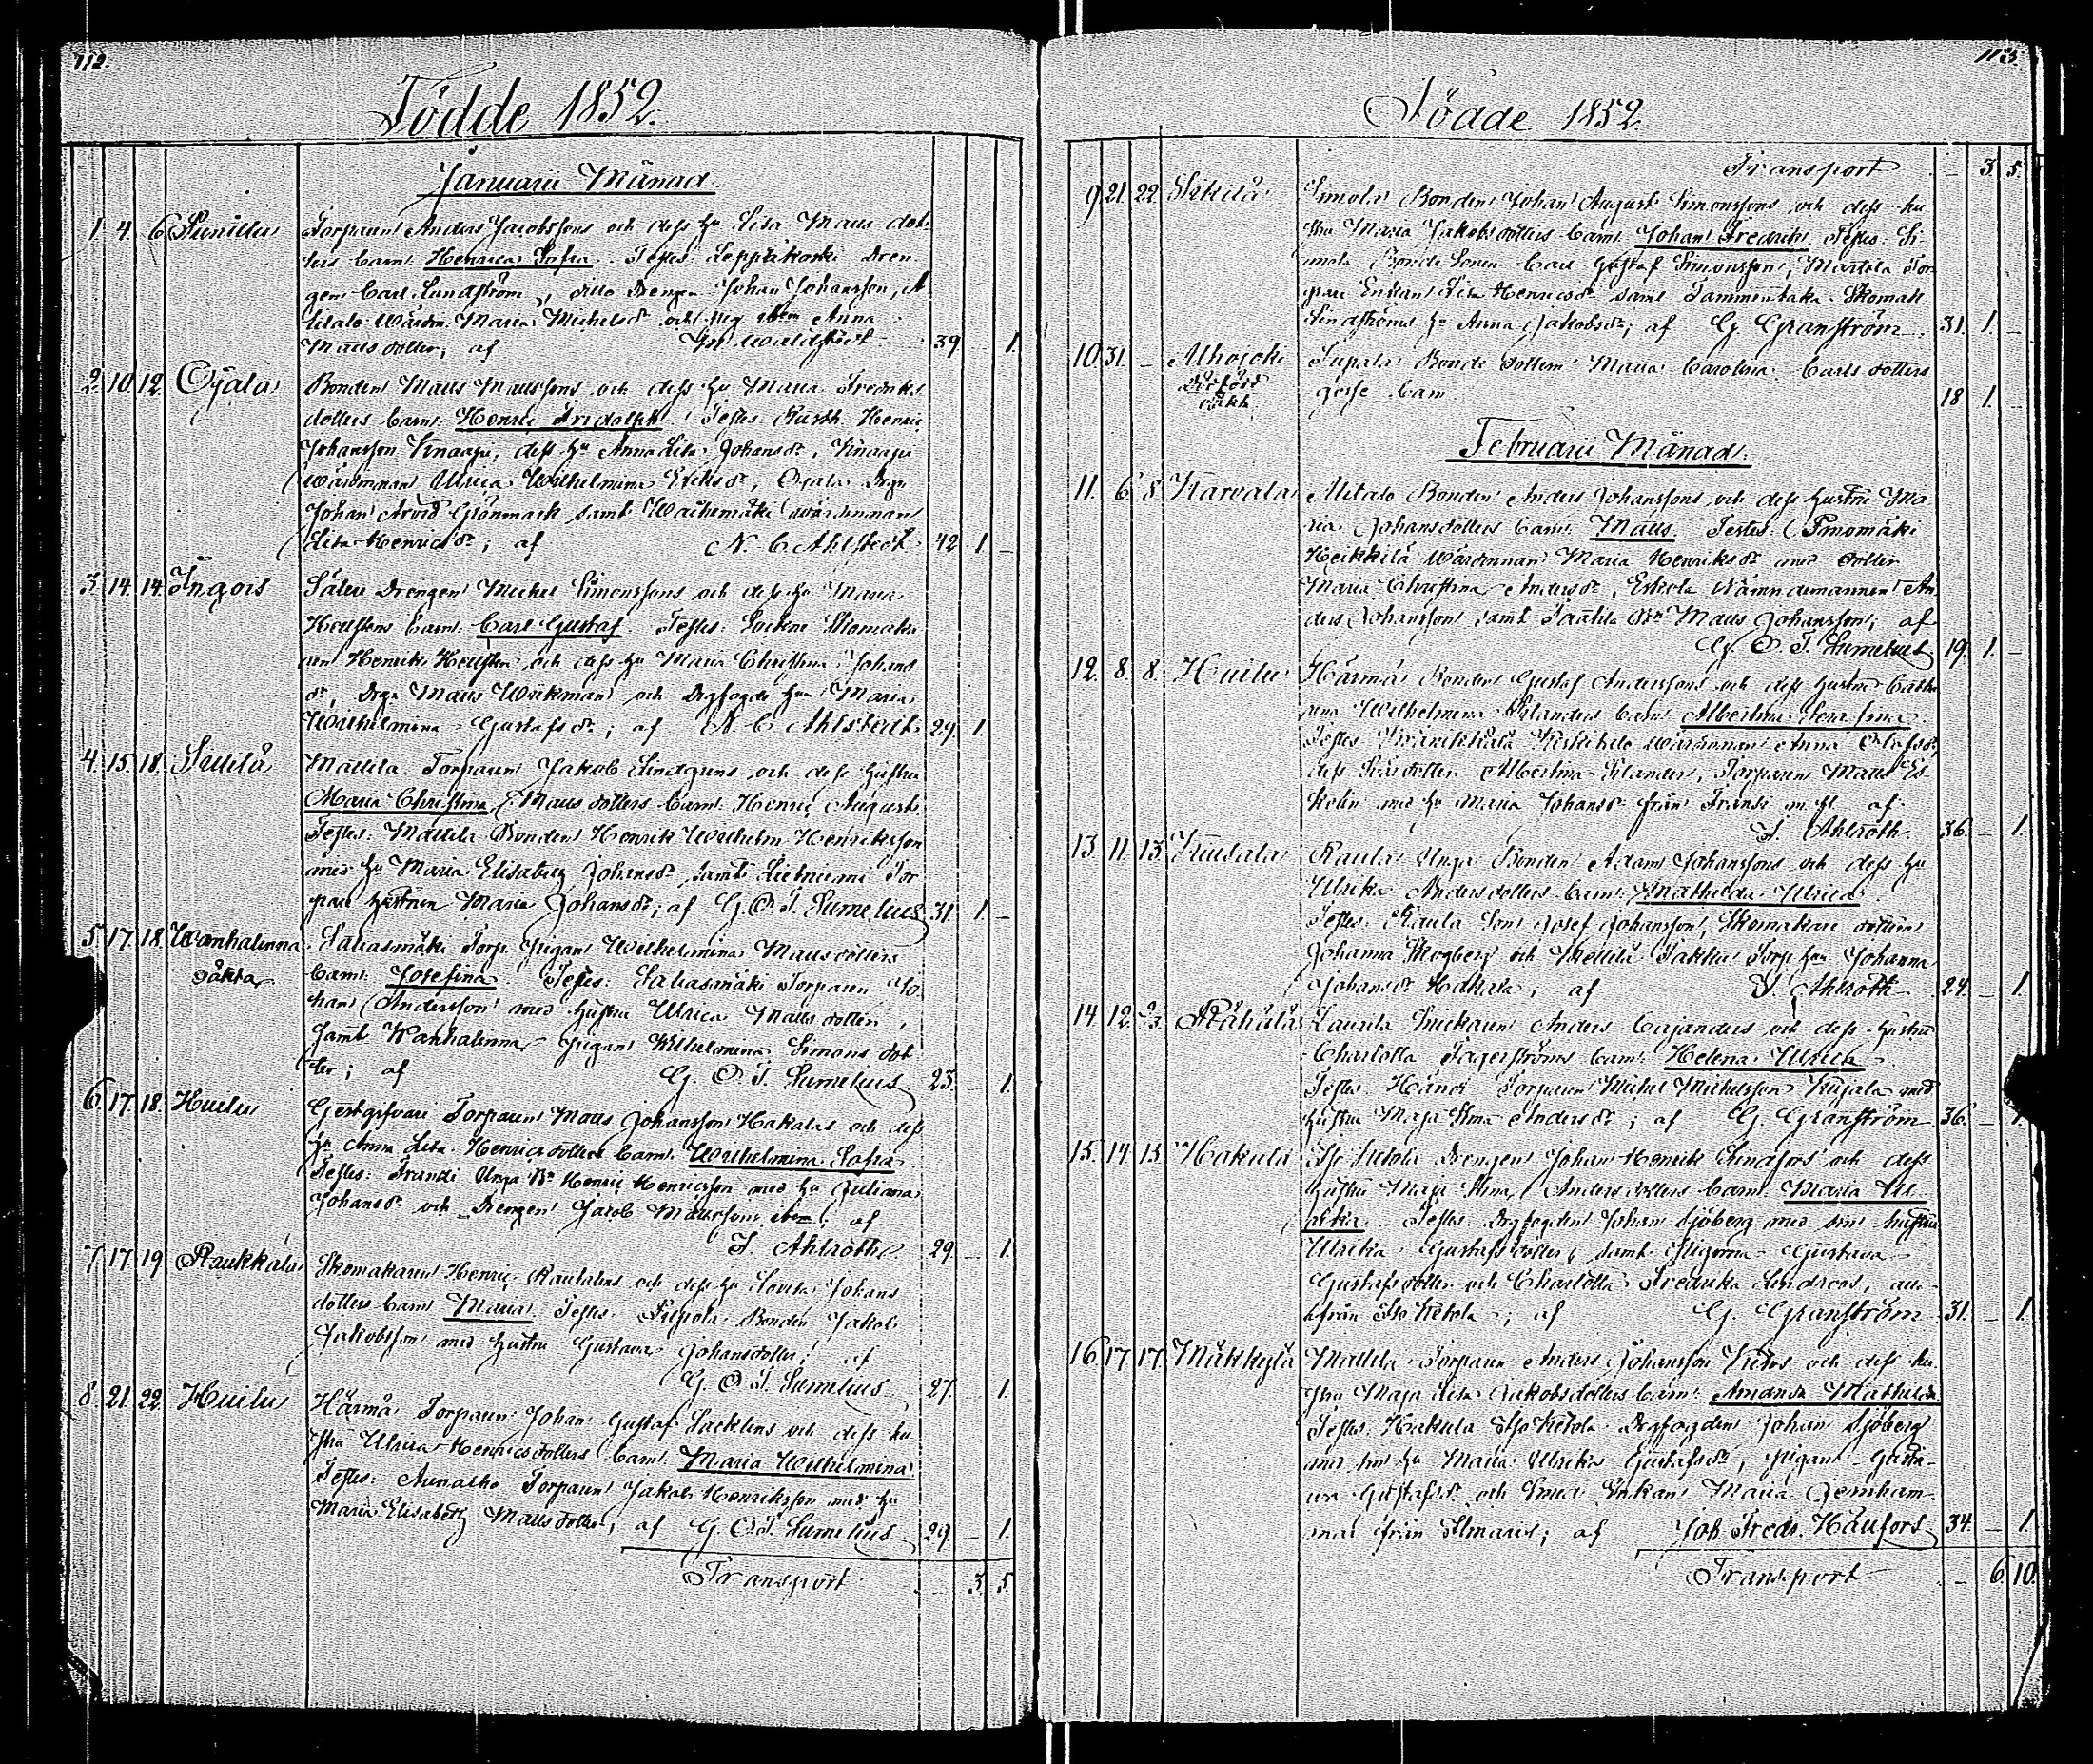 112.
Födde 1852.
Januarii Månad.
1. 4. 6 Sunilla Torparen Anders Jacobssons och dess hu Lisa Matts dot-
ters barn: Henrica Sofia. Testes: Leppäkoski Dren-
gen Carl Lundström, ditto Drengen Johan Johansson, A
litalo Wärdn. Maria Michelsdr och Anna
Matts dotter; af 39 1.
2. 10. 12. Ojala Bonden Matts Mattssons och dess hu Maria Fredriks
dotters barn: Henric Fridolph. Testes: Rusth. Henric
Johansson Knaapi, dess hu Anna Lisa Johansdr, Knaapi
wärdinnan Ulrica Wilhelmina Eriksdr, Ojala Drgn
Johan Arvid Grönmark samt wärdinnan
Lisa Henricsdr; af N. C. Ahlstedt 42 1 –
3. 14. 14. Ingois Säteri Drengen Michel Simonssons och dess hu Maria
Hellstens barn: Carl Gustaf. Testes: Sockne Skomaka
ren Henrik Hellsten och dess hu Maria Christina Johans
dr, Drgn Matts Wickman och Drgfogde hun Maria
Wilhelmina Gustafsdr; af N. C. Ahlstedt 29. 1.
4. 15. 18. Mattila Torparen Jakob Lindgrens och dess hustru
Maria Christina Matts dotters barn: Henric August.
Testes: Mattila Bonden Henrik Wilhelm Henriksson
med hu Maria Elisabeth Johansdr, samt Lieteniemi Tor
pare hustrun Maria Johansdr; af G. O. T. Sumelius 31. 1. –
5. 17. 18. Wanhalinna Saliasmäki Torp. Pigan Wilhelmina Matts dotters
oäkta barn: Josefina. Testes: Saliasmäki Torparen Jo
han Andersson med hustru Ulrica Matts dotter,
samt Wanhalinna Pigan Wilhelmina Simons dot
ter; af G. O. T. Sumelius 23. 1.
6. 17. 18. Huilu Gestgifvari Torparen Matts Johansson Hakalas och dess
hu Anna Lisa Henricsdotters barn: Wilhelmina Sofia
Testes: Frandi Unga Bn Henric Henricsson med hu Juliana
Johansdr och Drengen Jacob Mattsson; af
F. Ahlroth 29 1.
7. 17. 19 Raukkala Skomakaren Henric Rautalins och dess hu Lovisa Johans
dotters barn Maria. Testes: Bonden Jakob
Jakobsson med hustru Gustava Johansdotter; af
G. O. T. Sumelius 27. 1.
8. 21. 22. Huilu Härmä Torparen Johan Gustaf Sacklins och dess hu
stru Ulrica Henricsdotters barn: Maria Wilhelmina.
Testes: Torparen Jakob Henriksson med hu
Maria Elisabeth Matts dotter; af G. O. T. Sumelius 29 – 1.
Transport 3. 5.
113.
Födde 1852
Transport – 3. 5.
9. 21. 22. Sikilä Simola Bonden Johan August Simonssons och dess hu
stru Maria Jakobsdotters barn: Johan Fredrik. Testes: Si-
mola Bonde Sonen Carl Gustaf Simonsson, Marttila Tor
pare Enkan Lisa Henricsdr samt Tammentaka Skomak.
Lindströms hu Anna Jakobsdr; af G. Granström 31. 1. –
10. 31. – Alhojoki Bonde dottern Maria Carolina Carls dotters
dödfödd gosse barn 18 1. –
oäkta
Februarii Månad.
11. 6. 8. Karvala Alitalo Bonden Anders Johanssons och dess hustru Ma
ria Johansdotters barn: Matts. Testes:
Heikkilä wärdinnan Maria Henriksdr med dotter
Maria Christina Andersdr, Eskola Nämndemannen An
ders Johansson samt Bn Matts Johansson; af
G. O. T. Sumelius 19. 1. –
12. 8. 8. Huilu Härmä Bonden Gustaf Anderssons och dess hustru Catha
rina Wilhelmina Silanders barn: Albertina Serafina.
Testes wärdinnan Anna Olofsdr,
dess Albertina Silander, Torparen Matts Es
kolin med hu Maria Johansdr från Frandi m. fl. af
F. Ahlroth 36. – 1.
13. 11. 13. Kuusala Raula Unga Bonden Adam Johanssons och dess hu
Ulrika Andersdotters barn: Mathilda Ulrica.
Testes: Raula Son Josef Johansson, Skomakare dottern
Johanna Skogberg och Mellilä Torp. hun Johanna
Johansdr Hakala; af F. Ahlroth 24. – 1.
14 12. Rähälä Laurila Snickaren Anders Cajanders och dess hustru
Charlotta Fagerströms barn: Helena Ulrica.
Testes: Torparen Michel Michelsson Kujala med
hustru Maja Stina Andersdr; af G. Granström 36. – 1.
15. 14 15. Hakula Iso Ketola Drengen Johan Henrik Lindfors och dess
hustru Maja Stina Andersdotters barn: Maria Ul-
rika. Testes: Drgfogden Johan Sjöberg med sin hustru
Ulrika Gustafsdotter, samt Pigorna Gustava
Gustafsdotter och Charlotta Fredrika Lindroos, alla
från Iso Ketola; af G. Granström 31. – 1.
16 17 17. Mäkkylä Mattila Torparen Anders Johansson och dess hu-
stru Maja Lisa Jakobsdotters barn: Amanda Mathilda.
Testes: Hakula Iso Ketola Drgfogden Johan Sjöberg
med sin hu Maria Ulrika Gustafsdr, Pigan Gusta-
va Gustafsdr och Smed Enkan Maria Jernham-
mar från Ilmaris; af Joh. Fredr. Häufors 34. – 1.
Transport – 6. 10.